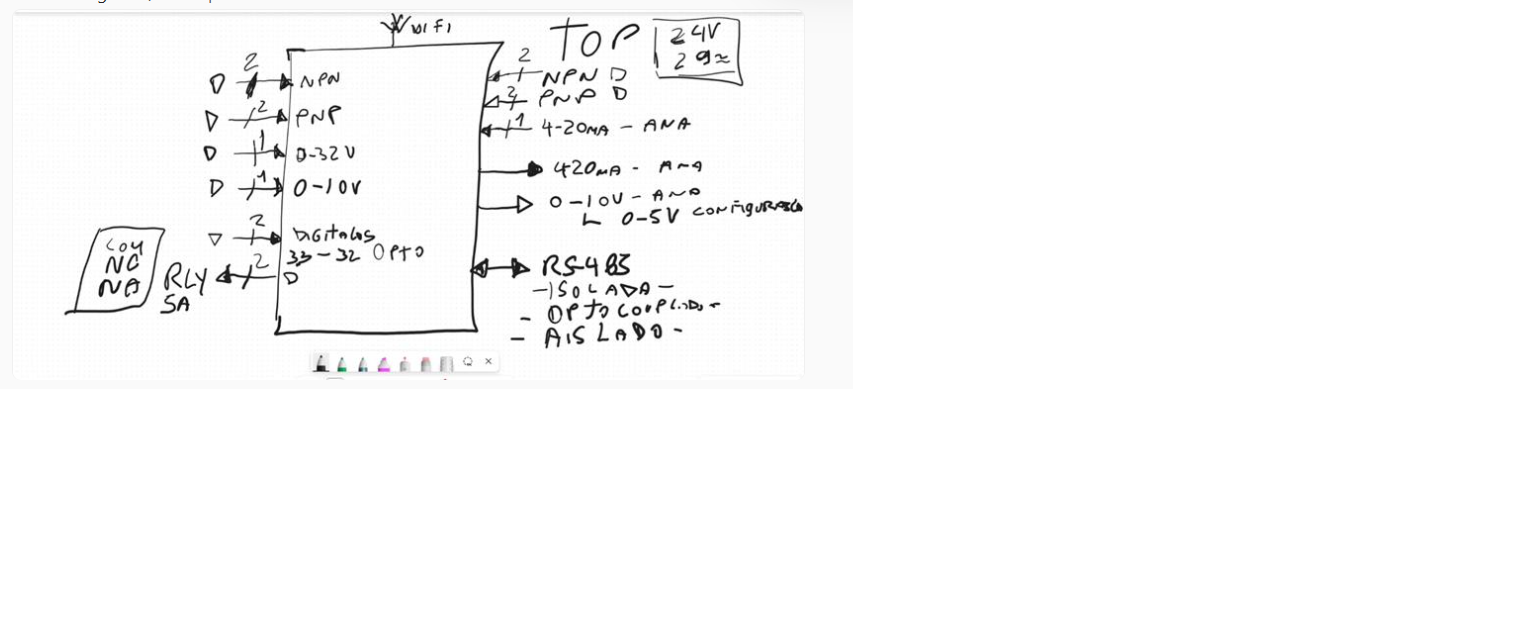 WIFI
TOP
24V
2 9~
2 NPN
D 2 PNP
D 1 0-32V
D 1 0-10V
2 DIGITALES
33-32 OPTO
D
2
RLY
5A
COM
NC
NA
2 NPN D
2 PNP D
1 4-20mA - ANA
420mA - ANA
0-10V - ANA
0-5V CONFIGURABLE
RS-485
- ISOLADA -
- OPTOCOUPLADO -
- AISLADO -